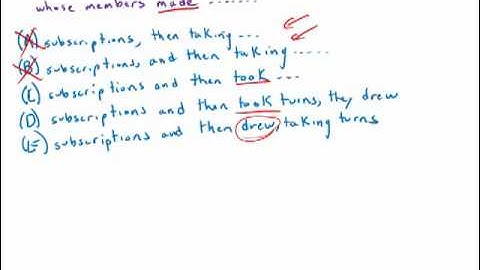 whose members made ........
(A) subscriptions, then taking ...
(B) subscriptions, and then taking ....
(C) subscriptions and then took ....
(D) subscriptions and then took turns, they drew
(E) subscriptions and then drew, taking turns